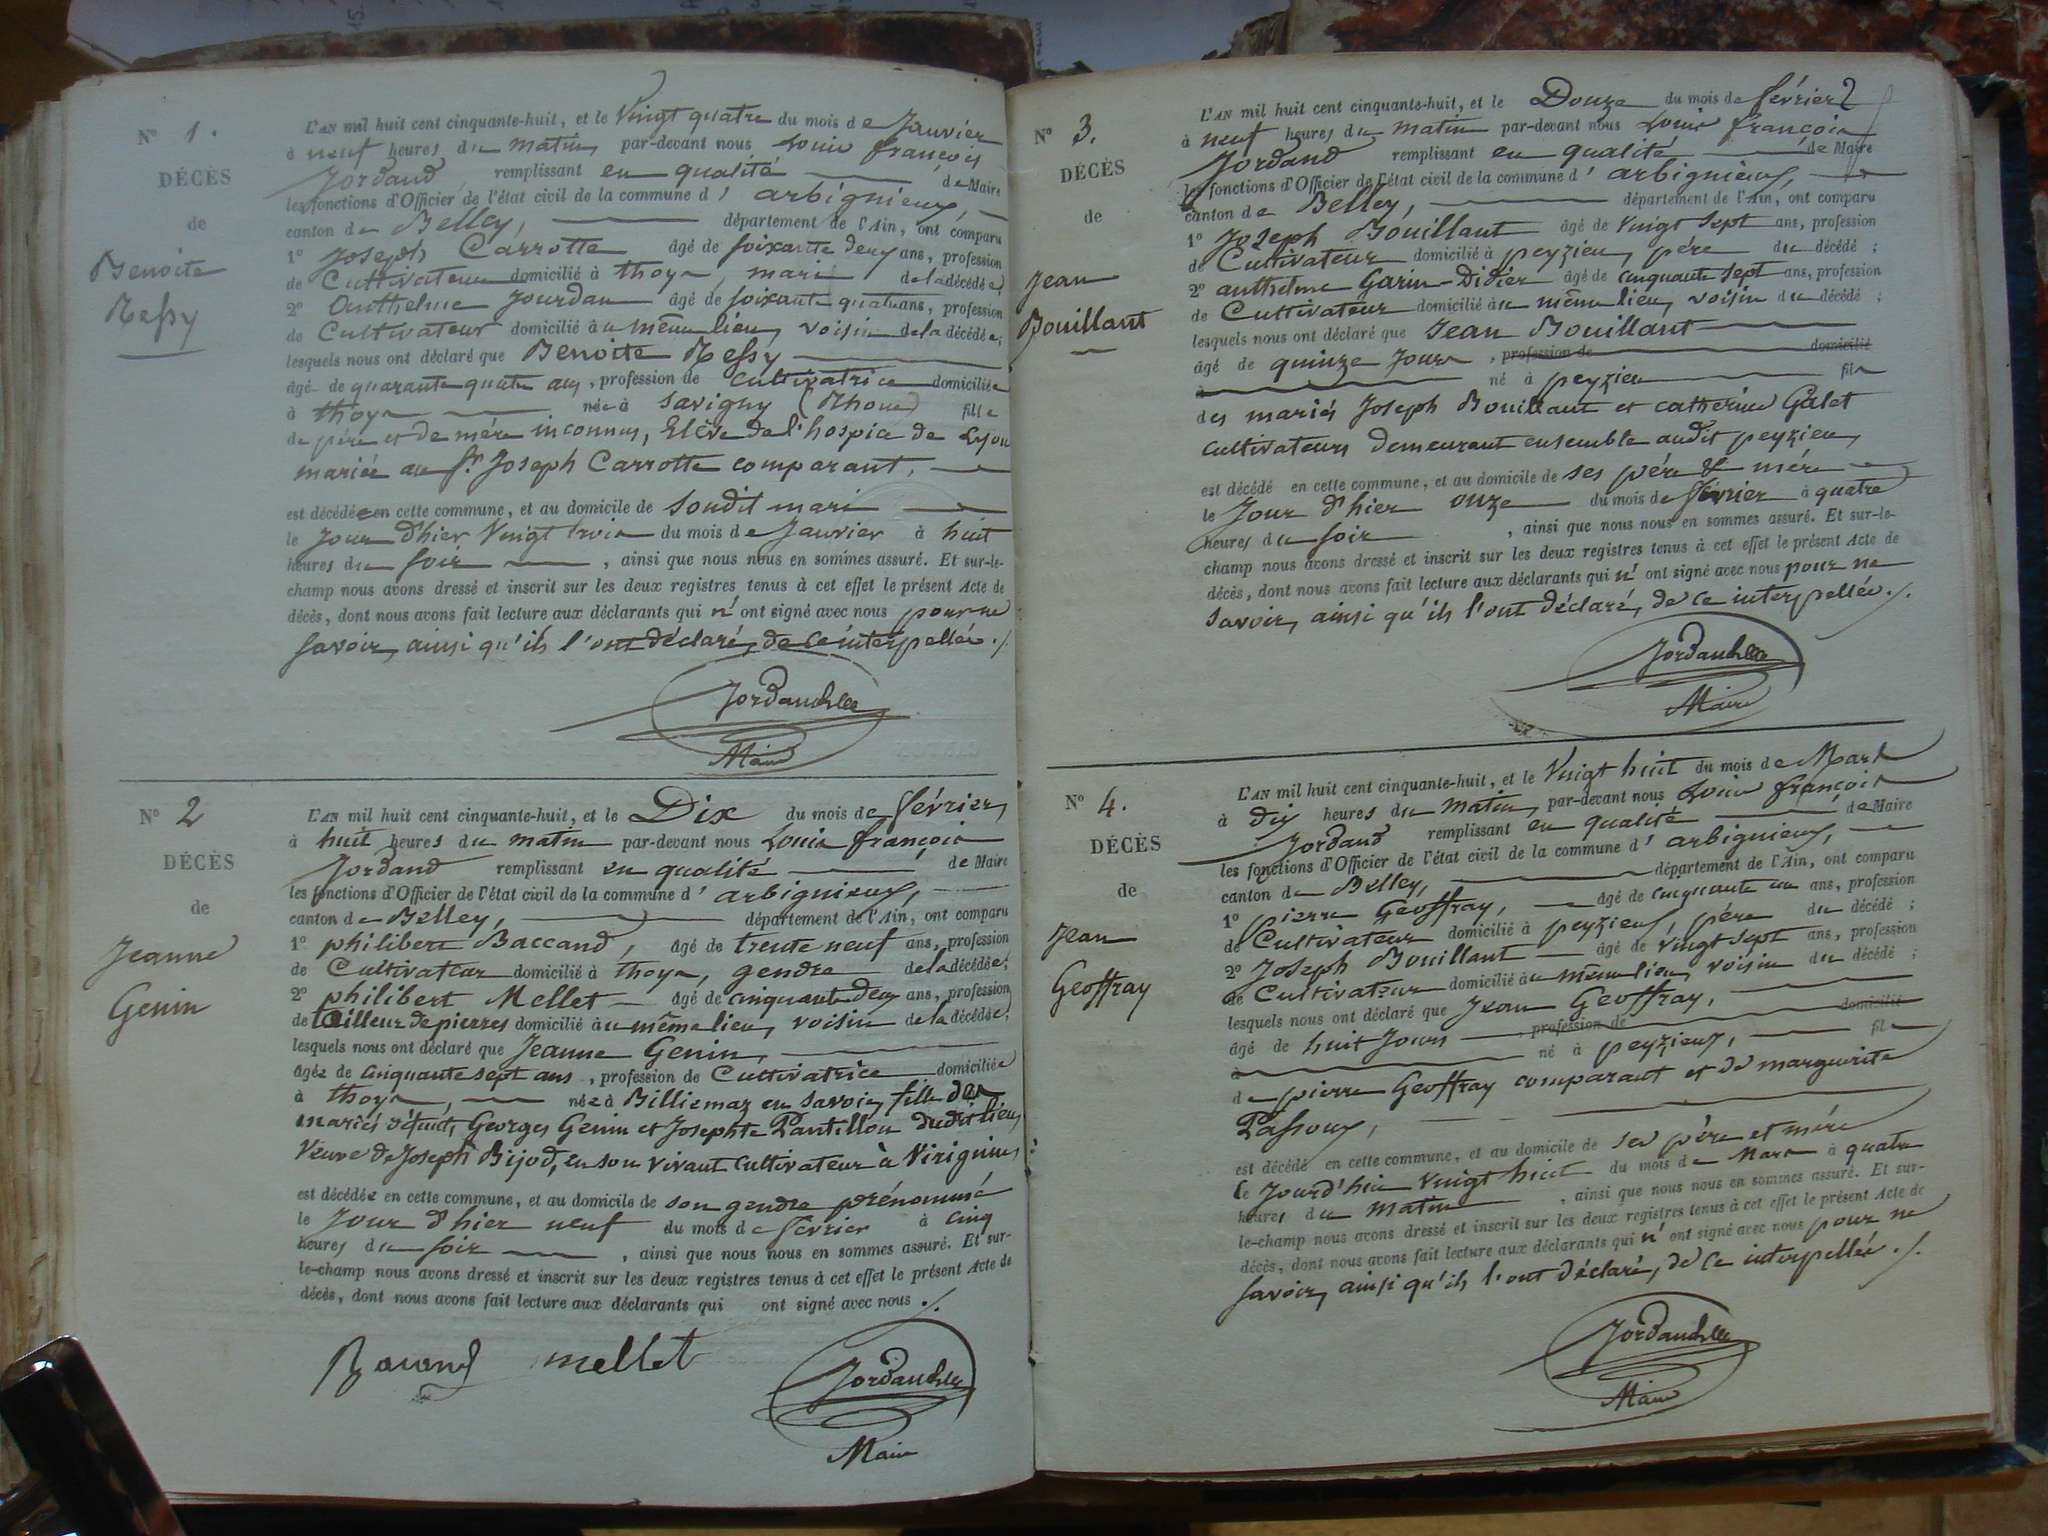 N° 1.
DÉCÈS
de
Benoite
Ressy
L'AN mil huit cent cinquante-huit, et le Vingt quatre du mois de Janvier
à neuf heures du matin par-devant nous Louis françois
Jordand, remplissant en qualité de Maire
les fonctions d'Officier de l'état civil de la commune d'arbignieux,
canton de Belley, département de l'Ain, ont comparu
1° Joseph Carrotte âgé de soixante deux ans, profession
de Cultivateur domicilié à thoys, mari de la décédée,
2° Anthelme Jourdan âgé de soixante quatre ans, profession
de Cultivateur domicilié au même lieu, voisin de la décédée;
lesquels nous ont déclaré que Benoite Ressy
âgé de quarante quatre ans, profession de cultivatrice domiciliée
à thoys née à Savigny (Rhone) fille
de père et de mère inconnus, Elève de l'hospice de Lyon
mariée au Sr. Joseph Carrotte comparant,
est décédée en cette commune, et au domicile de soudit mari
le Jour d'hier Vingt trois du mois de Janvier à huit
heures du soir, ainsi que nous nous en sommes assuré. Et sur-le-
champ nous avons dressé et inscrit sur les deux registres tenus à cet effet le présent Acte de
décès, dont nous avons fait lecture aux déclarants qui n'ont signé avec nous pour ne
savoir, ainsi qu'ils l'ont déclaré, de ce interpellés./.
Maire
N° 2
DÉCÈS
de
Jeanne
Genin
L'AN mil huit cent cinquante-huit, et le Dix du mois de février,
à huit heures du matin par-devant nous Louis françois
Jordand remplissant en qualité de Maire
les fonctions d'Officier de l'état civil de la commune d'arbignieux,
canton de Belley, département de l'Ain, ont comparu
1° philibert Baccand, âgé de trente neuf ans, profession
de Cultivateur domicilié à thoys, gendre de la décédée;
2° philibert Mellet âgé de cinquante deux ans, profession
de tailleur de pierres domicilié au même lieu, voisin de la décédée;
lesquels nous ont déclaré que Jeanne Genin,
âgée de cinquante sept ans, profession de Cultivatrice domiciliée
à thoys, née à Billiemaz en Savoie, fille des
mariés défunts Georges Genin et Josephte Pantillon dudit lieu,
Veuve de Joseph Bijod, en son vivant cultivateur à Virignin;
est décédée en cette commune, et au domicile de son gendre prénommé
le Jour d'hier neuf du mois de février à cinq
heures du soir, ainsi que nous nous en sommes assuré. Et sur-
le-champ nous avons dressé et inscrit sur les deux registres tenus à cet effet le présent Acte de
décès, dont nous avons fait lecture aux déclarants qui ont signé avec nous./.
mellet
Maire
N° 3.
DÉCÈS
de
Jean
Bouillant
L'AN mil huit cent cinquante-huit, et le Douze du mois de février
à neuf heures du matin par-devant nous Louis françois
Jordand remplissant en qualité de Maire
les fonctions d'Officier de l'état civil de la commune d'arbignieux,
canton de Belley, département de l'Ain, ont comparu
1° Joseph Bouillant âgé de vingt sept ans, profession
de Cultivateur domicilié à peyzieu, père du décédé;
2° anthelme Garin-Didier âgé de cinquante sept ans, profession
de Cultivateur domicilié au même lieu, voisin du décédé;
lesquels nous ont déclaré que Jean Bouillant
âgé de quinze Jours, profession de domicilié
à né à peyzieu fils
des mariés Joseph Bouillant et catherine Galet
cultivateurs demeurant ensemble audit peyzieu,
est décédé en cette commune, et au domicile de ses père & mère
le Jour d'hier onze du mois de février à quatre
heures du soir, ainsi que nous nous en sommes assuré. Et sur-le-
champ nous avons dressé et inscrit sur les deux registres tenus à cet effet le présent Acte de
décès, dont nous avons fait lecture aux déclarants qui n'ont signé avec nous pour ne
savoir, ainsi qu'ils l'ont déclaré, de ce interpellés./.
Maire
N° 4.
DÉCÈS
de
Jean
Geoffray
L'AN mil huit cent cinquante-huit, et le Vingt huit du mois de Mars
à dix heures du matin, par-devant nous Louis françois
Jordand remplissant en qualité de Maire
les fonctions d'Officier de l'état civil de la commune d'arbignieux,
canton de Belley, département de l'Ain, ont comparu
1° pierre Geoffray, âgé de cinquante un ans, profession
de Cultivateur domicilié à peyzieux, père du décédé;
2° Joseph Bouillant âgé de vingt sept ans, profession
de Cultivateur domicilié au même lieu, voisin du décédé;
lesquels nous ont déclaré que Jean Geoffray,
âgé de huit Jours profession de domicilié
à né à peyzieux, fils
de pierre Geoffray comparant et de marguerite
Passoux,
est décédé en cette commune, et au domicile de ses père et mère
le Jourd'hui vingt huit du mois de Mars à quatre
heures du matin, ainsi que nous nous en sommes assuré. Et sur-
le-champ nous avons dressé et inscrit sur les deux registres tenus à cet effet le présent Acte de
décès, dont nous avons fait lecture aux déclarants qui n'ont signé avec nous pour ne
savoir, ainsi qu'ils l'ont déclaré, de ce interpellés./.
Maire